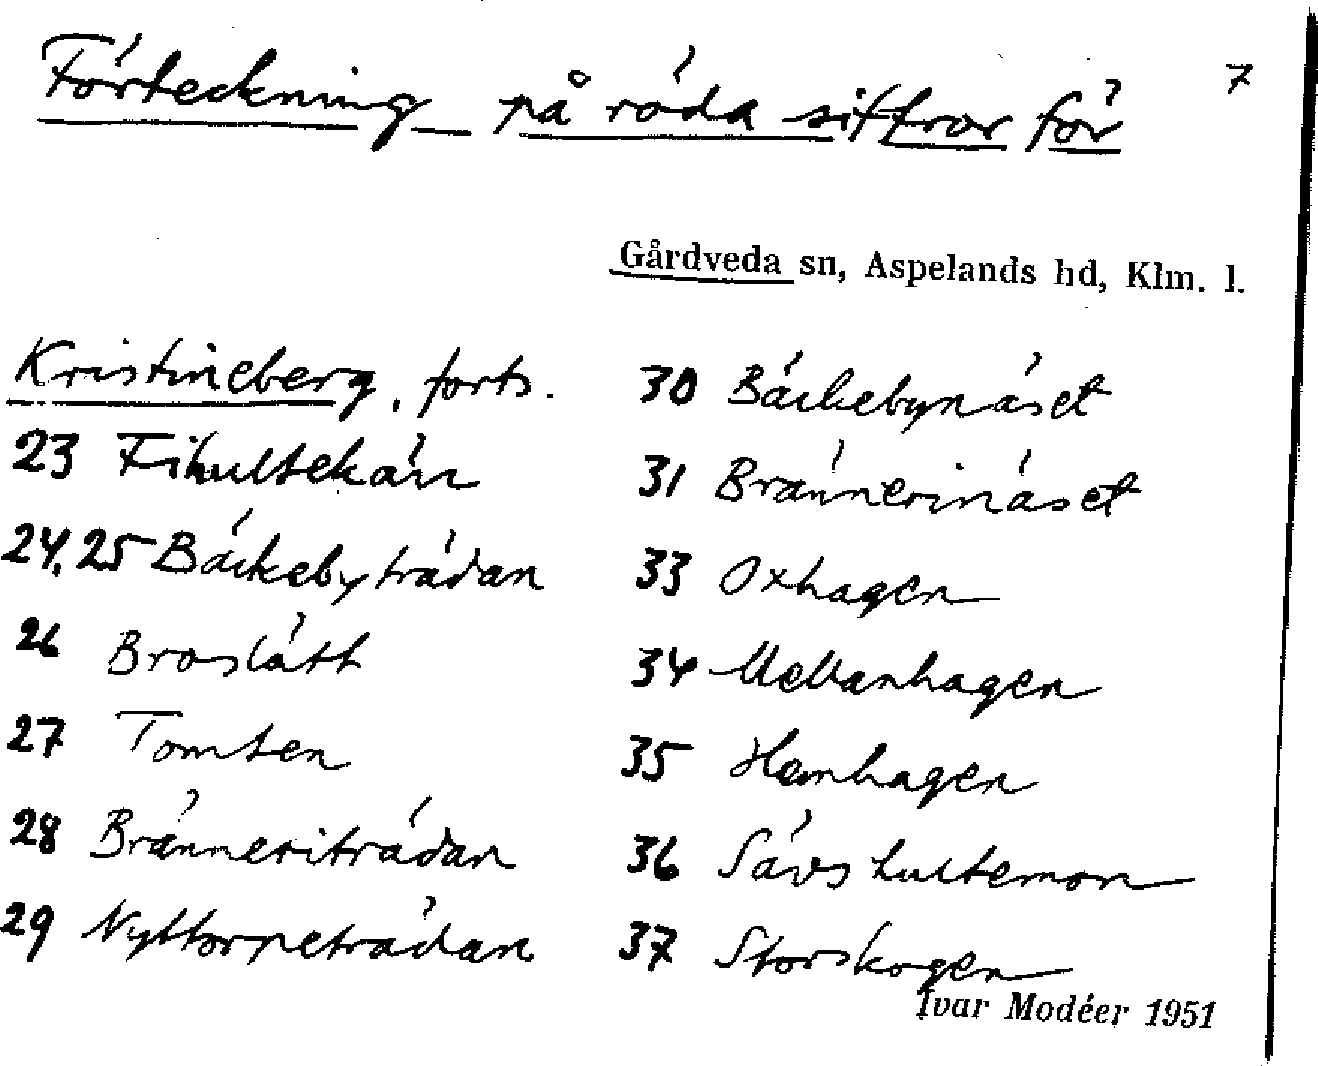 Förteckning på röda siffror för
7
Gårdveda sn, Aspelands hd, Klm. l.
Kristineberg, forts.
23 Fihultekärr
24, 25 Bäckebyträdan
26 Broslätt
27 Tomten
28 Bränneriträdan
29 Nyttorpeträdan
30 Bäckebynäset
31 Brännerinäset
33 Oxhagen
34 Mellanhagen
35 Hemhagen
36 Sävshultemon
37 Storskogen
Ivar Modéer 1951